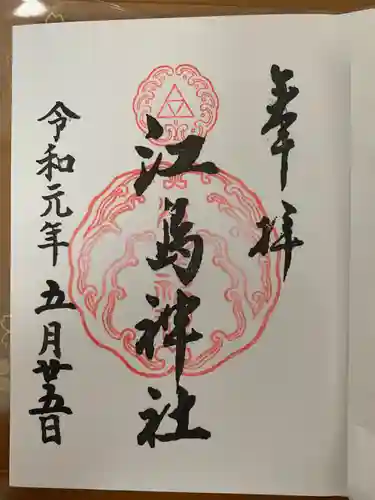 奉拝
江島神社
令和元年五月廿五日